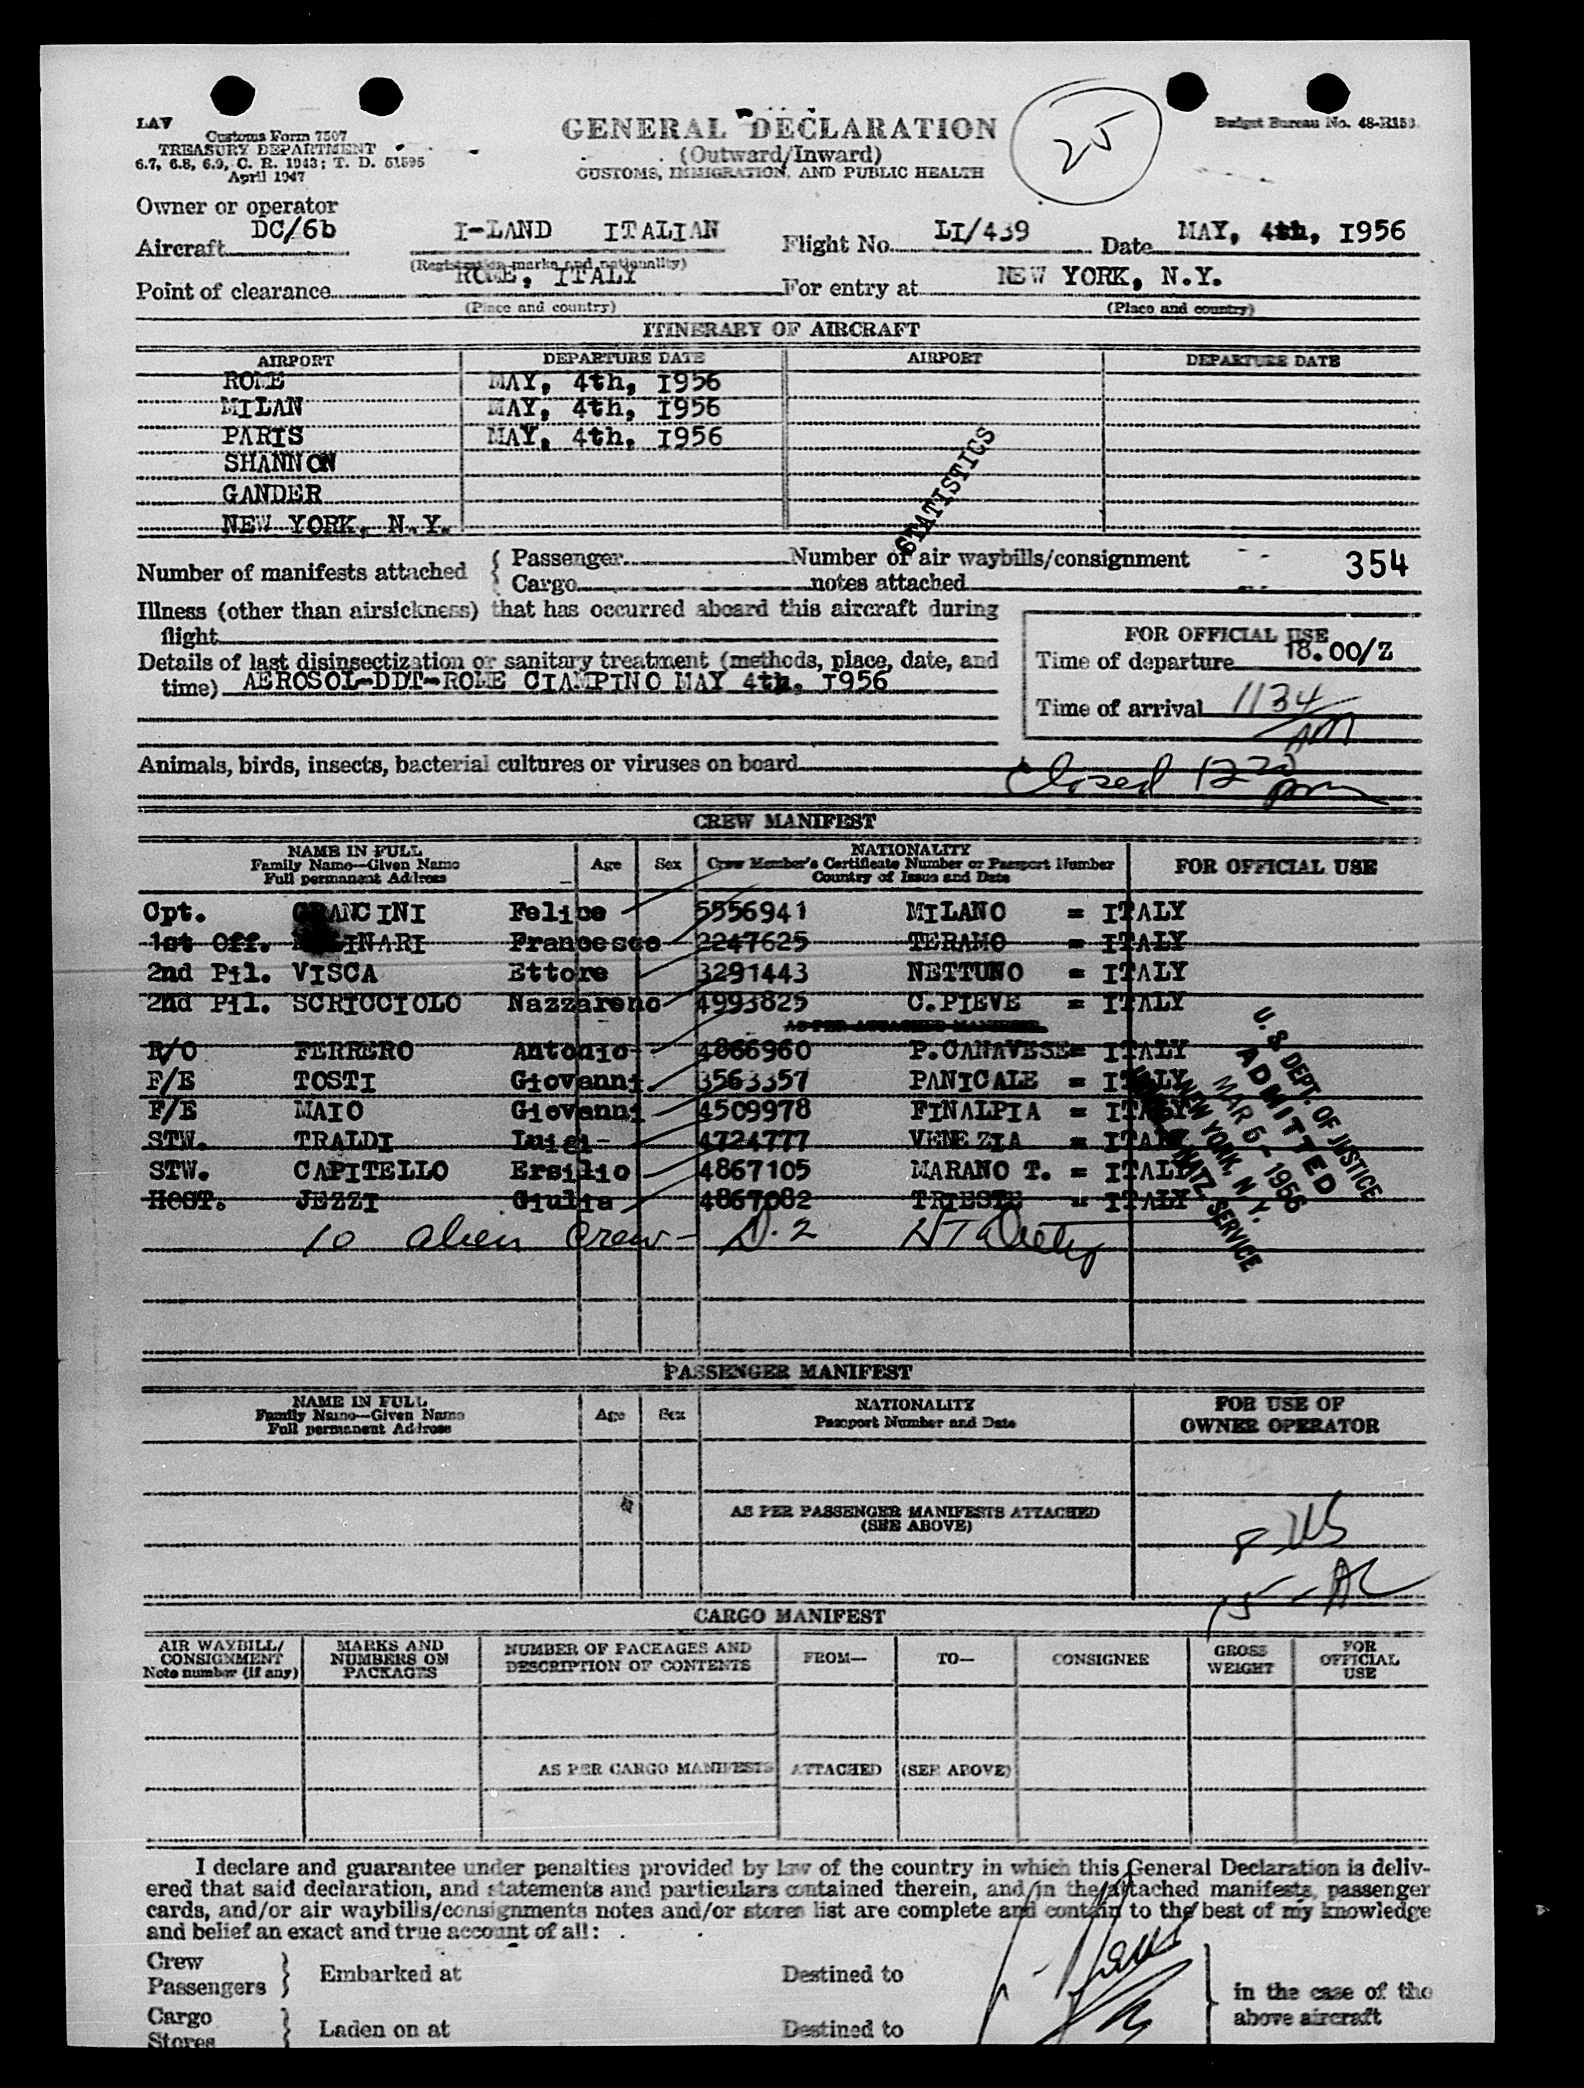 LAV
Customs Form 7507
TREASURY DEPARTMENT
6.7, 6.8, 6.9, C. R. 1943; T. D. 51595
April 1947
GENERAL DECLARATION
(Outward/Inward)
CUSTOMS, IMMIGRATION, AND PUBLIC HEALTH
25
Budget Bureau No. 48-R153.
Owner or operator
Aircraft DC/6b I-LAND ITALIAN Flight No. LI/439 Date MAY, 4th, 1956
(Registration marks and nationality)
Point of clearance ROME, ITALY For entry at NEW YORK, N.Y.
(Place and country) (Place and country)
ITINERARY OF AIRCRAFT
AIRPORT DEPARTURE DATE AIRPORT DEPARTURE DATE
ROME MAY, 4th, 1956
MILAN MAY, 4th, 1956
PARIS MAY, 4th, 1956
SHANNON
GANDER
NEW YORK, N.Y.
STATISTICS
Number of manifests attached { Passenger Number of air waybills/consignment
Cargo notes attached
354
Illness (other than airsickness) that has occurred aboard this aircraft during
flight
Details of last disinsectization or sanitary treatment (methods, place, date, and
time) AEROSOL-DDT-ROME CIAMPINO MAY 4th, 1956
FOR OFFICIAL USE
Time of departure 18.00/Z
Time of arrival 1134
AM
Animals, birds, insects, bacterial cultures or viruses on board
Closed 12 20 pm
CREW MANIFEST
NAME IN FULL
Family Name—Given Name
Full permanent Address
Age Sex
NATIONALITY
Crew Member's Certificate Number or Passport Number
Country of Issue and Date
FOR OFFICIAL USE
Cpt. GRANCINI Felice 5556941 MILANO = ITALY
1st Off. Francesco 2247625 TERAMO = ITALY
2nd Pil. VISCA Ettore 3291443 NETTUNO = ITALY
2nd Pil. SCRICCIOLO Nazzareno 4993825 C.PIEVE = ITALY
AS PER ATTACHED MANIFEST
R/O FERRERO Antonio 4866960 P.CANAVESE= ITALY
F/E TOSTI Giovanni 3563357 PANICALE = ITALY
F/E MAIO Giovanni 4509978 FINALPIA = ITALY
STW. TRALDI Luigi 4724777 VENEZIA = ITALY
STW. CAPITELLO Ersilio 4867105 MARANO T. = ITALY
HOST. JEZZI Giulia 4867082 TRIESTE = ITALY
10 alien crew - D.2
U. S. DEPT. OF JUSTICE
ADMITTED
MAR 5 - 1956
NEW YORK, N. Y.
NATZ. SERVICE
PASSENGER MANIFEST
NAME IN FULL
Family Name—Given Name
Full permanent Address
Age Sex
NATIONALITY
Passport Number and Date
FOR USE OF
OWNER OPERATOR
AS PER PASSENGER MANIFESTS ATTACHED
(SEE ABOVE)
8 US
15 - AL
CARGO MANIFEST
AIR WAYBILL/
CONSIGNMENT
Note number (if any)
MARKS AND
NUMBERS ON
PACKAGES
NUMBER OF PACKAGES AND
DESCRIPTION OF CONTENTS
FROM— TO— CONSIGNEE
GROSS
WEIGHT
FOR
OFFICIAL
USE
AS PER CARGO MANIFESTS ATTACHED (SEE ABOVE)
I declare and guarantee under penalties provided by law of the country in which this General Declaration is deliv-
ered that said declaration, and statements and particulars contained therein, and in the attached manifests, passenger
cards, and/or air waybills/consignments notes and/or stores list are complete and contain to the best of my knowledge
and belief an exact and true account of all:
Crew
Passengers } Embarked at Destined to
in the case of the
above aircraft
Cargo
Stores } Laden on at Destined to